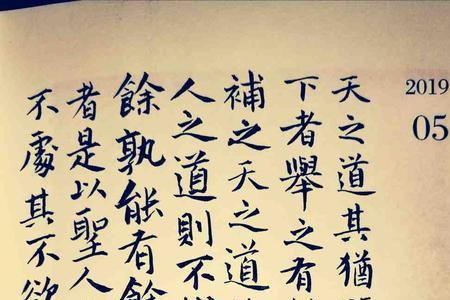 2019
05
天之道其猶
下者舉之有
補之天之道
人之道則不
餘孰能者餘
者是以聖人
不處其不欲